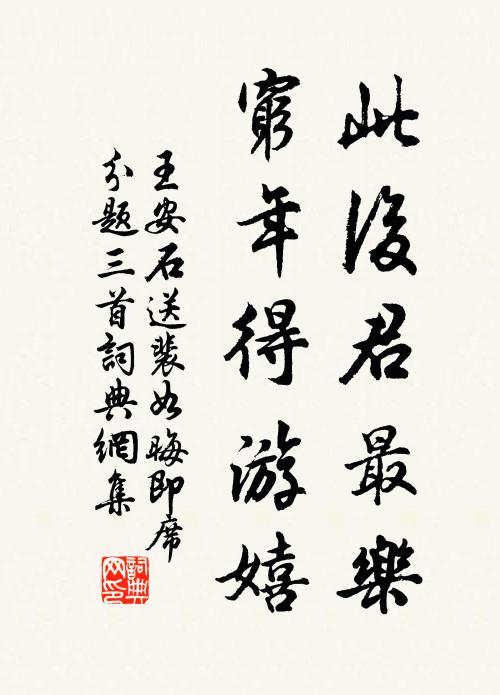 此後君最樂
窮年得游嬉
王安石送裴如晦即席
分題三首詞典網集
詞典
网印